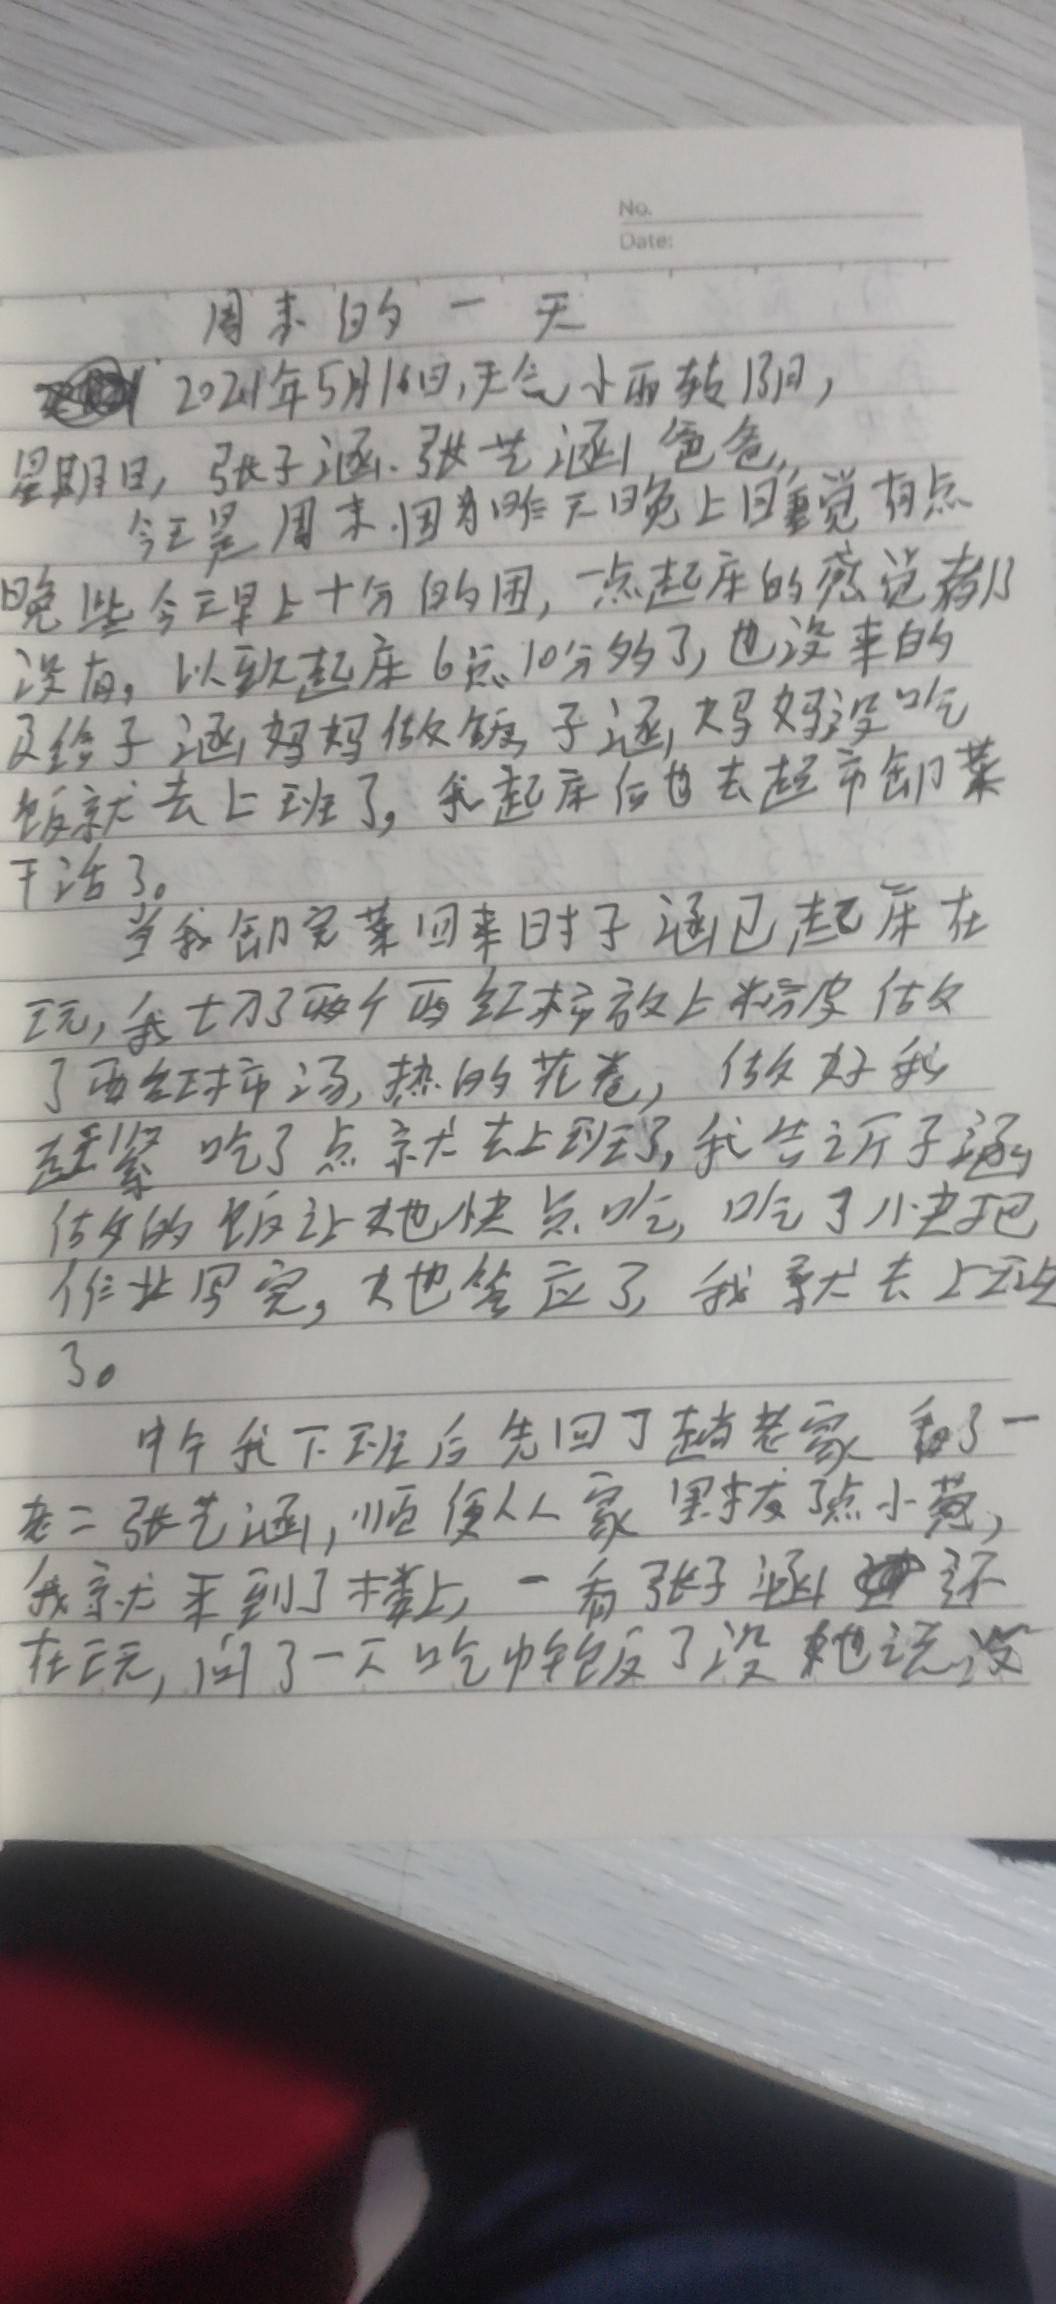 No.
Date:
周末的一天
2021年5月16日,天气小雨转阴,
星期日,张子涵、张艺涵爸爸,
今天是周末,因为昨天晚上睡觉有点
晚些今天早上十分的困,一点起床的感觉都
没有。以致起床6点10分多了,也没来的
及给子涵妈妈做饭,子涵妈妈没吃
饭就去上班了。我起床后也去超市卸菜
干活了。
当我卸完菜回来时子涵已起床在
玩,我切了两个西红柿放上粉皮做
了西红柿汤,热的花卷,做好我
赶紧吃了点就去上班了,我告诉子涵
做的饭让她快点吃,吃了小快把
作业写完。她答应了,我就去上班
了。
中午我下班后先回了趟老家看了一
老二张艺涵,顺便从家里拔了点小葱,
我就来到了楼上,一看张子涵还
在玩,问了一下吃中午饭了没她说没